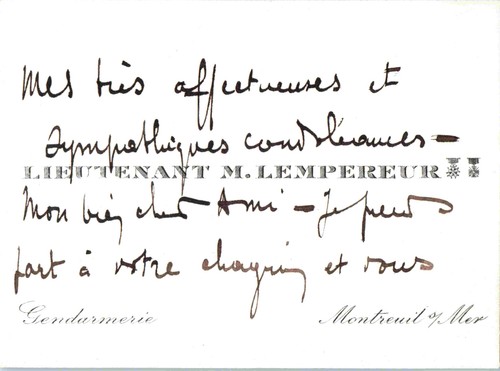 Mes très affectueuses et
sympathiques condoléances –
LIEUTENANT M. LEMPEREUR
Mon bien cher Ami – Je prends
part à votre chagrin et vous
Gendarmerie Montreuil s/Mer